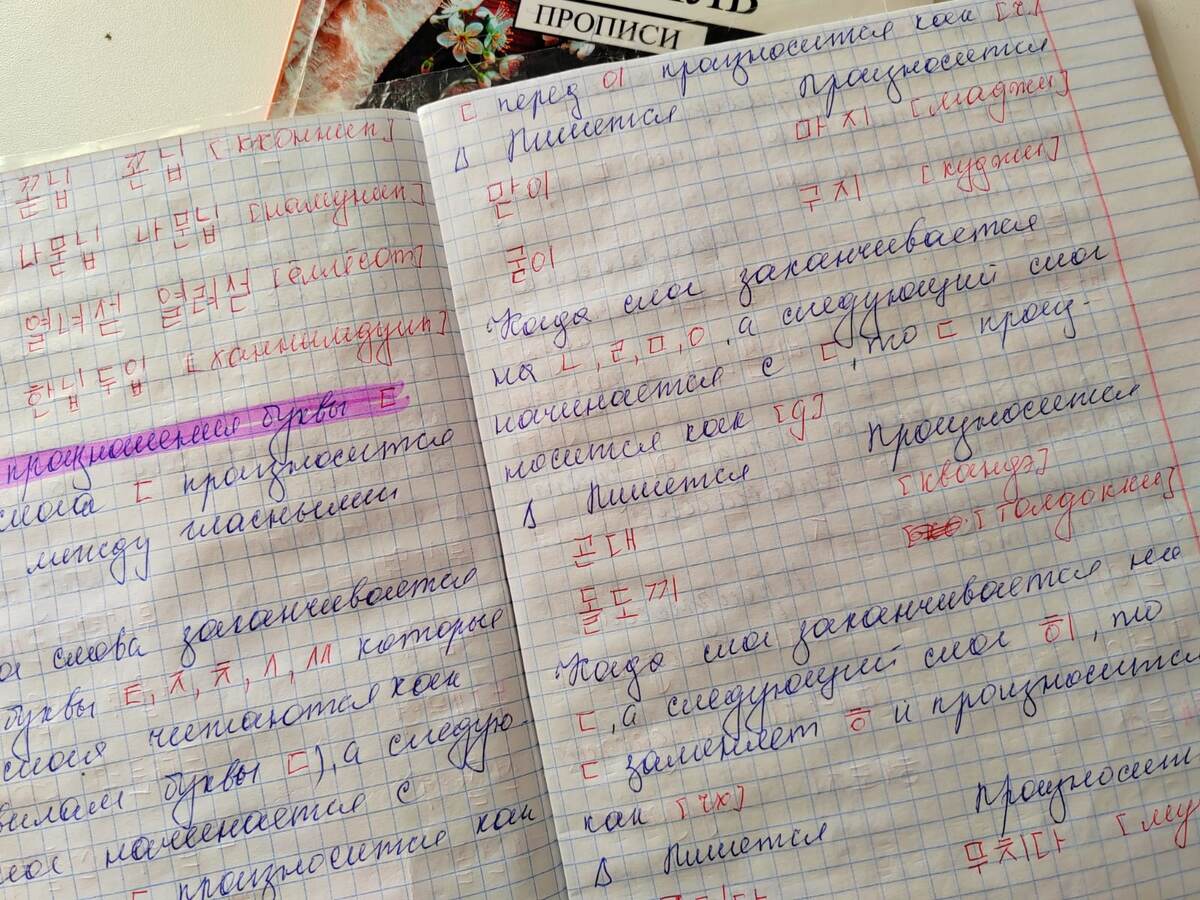 ПРОПИСИ
꽃잎 꼰닙 [кконнип]
나뭇잎 나문닙 [намунип]
한닙두입 [ханнымдуип]
произношения буквы ㄷ
слога ㄷ произносится
между гласными
слова заканчивается
буквы ㅌ, ㅈ, ㅊ, ㅅ, ㅆ которые
читаются как
буквы ㄷ), а следую-
начинается с
ㄷ произносится как
ㄷ перед 이 произносится как [ч]
Δ Пишется Произносится
맏이 마지 [маджи]
굳이 구지 [куджи]
Когда слог заканчивается
на ㄴ, ㄹ, ㅁ, ㅇ, а следующий слог
начинается с ㄷ, то ㄷ произ-
носится как [д]
Δ Пишется Произносится
곤대 [квандэ]
돌도끼 [толдокки]
Когда слог заканчивается на
ㄷ, а следующий слог 히, то
ㄷ заменяет ㅎ и произносится
как [чх]
Δ Пишется Произносит
무치다 [му